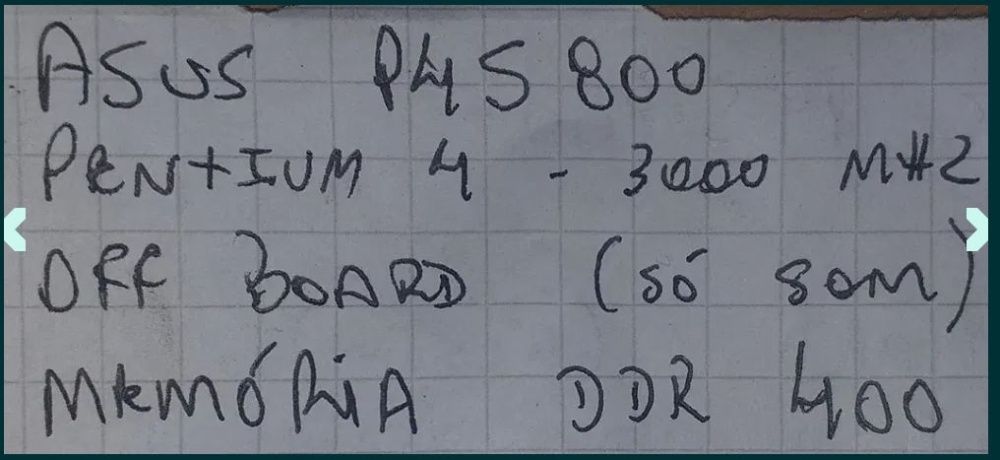 ASUS P4S800
PENTIUM 4 - 3000 MHZ
OFF BOARD (SÓ SOM)
MEMÓRIA DDR 400